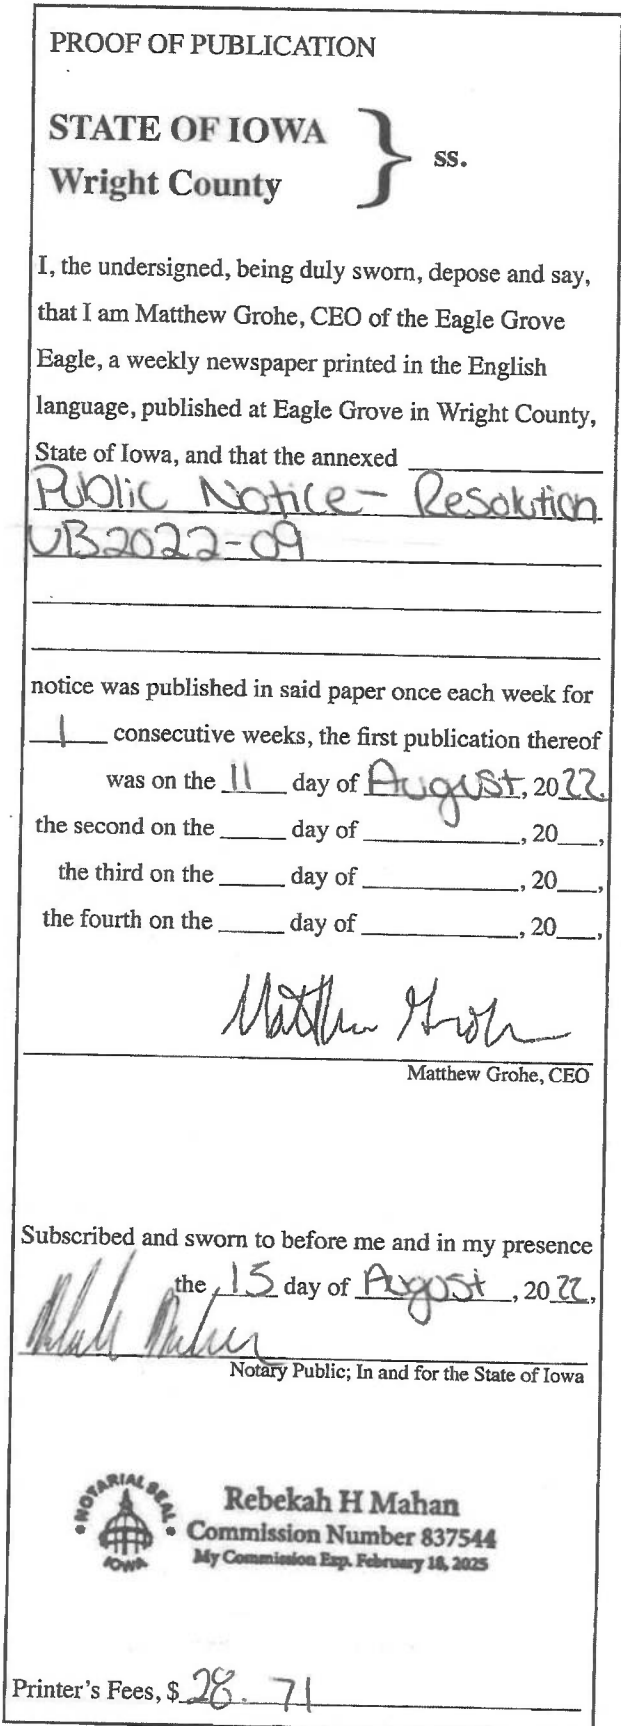 PROOF OF PUBLICATION
STATE OF IOWA
Wright County
ss.
I, the undersigned, being duly sworn, depose and say,
that I am Matthew Grohe, CEO of the Eagle Grove
Eagle, a weekly newspaper printed in the English
language, published at Eagle Grove in Wright County,
State of Iowa, and that the annexed
Public Notice- Resolution
UB2022-09
notice was published in said paper once each week for
1 consecutive weeks, the first publication thereof
was on the 11 day of August, 2022.
the second on the ____ day of ________, 20__,
the third on the ____ day of ________, 20__,
the fourth on the ____ day of ________, 20__,
Matthew Grohe
Matthew Grohe, CEO
Subscribed and sworn to before me and in my presence
the 15 day of August, 2022,
Notary Public; In and for the State of Iowa
NOTARIAL SEAL
IOWA
Rebekah H Mahan
Commission Number 837544
My Commission Exp. February 18, 2025
Printer's Fees, $28.71